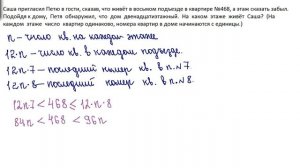 Саша пригласил Петю в гости, сказав, что живёт в восьмом подъезде в квартире №468, а этаж сказать забыл.
Подойдя к дому, Петя обнаружил, что дом двенадцатиэтажный. На каком этаже живёт Саша? (На
каждом этаже число квартир одинаково, номера квартир в доме начинаются с единицы.)
n - число кв. на каждом этаже
12·n - число кв. в каждом подъезде.
12n·7 - последний номер кв. в п.№7.
12n·8 - последний номер кв. в п.№8.
12n·7 < 468 ≤ 12·n·8
84n < 468 < 96n